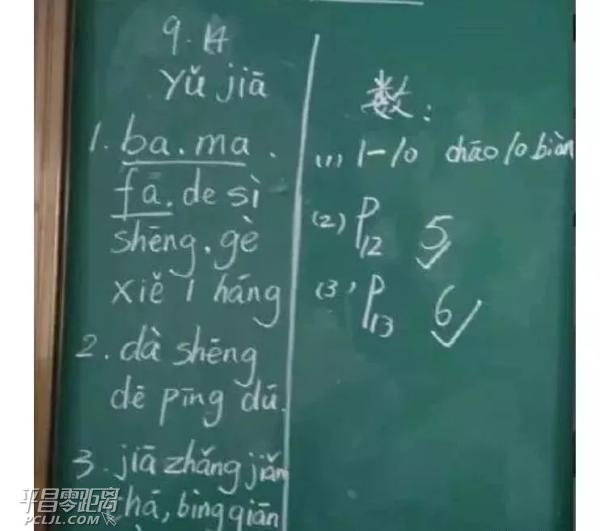 9.14
yǔ jiā
1. ba. ma.
fā. de sì
shēng. gè
xiě 1 háng
2. dà shēng
dē pīng dú.
3. jiā zhǎng jiǎn
hā, bìng qiān
数:
(1) 1-10 chāo 10 biàn
(2) P12 5
(3) P13 6
平昌零距离
PCLJL.COM